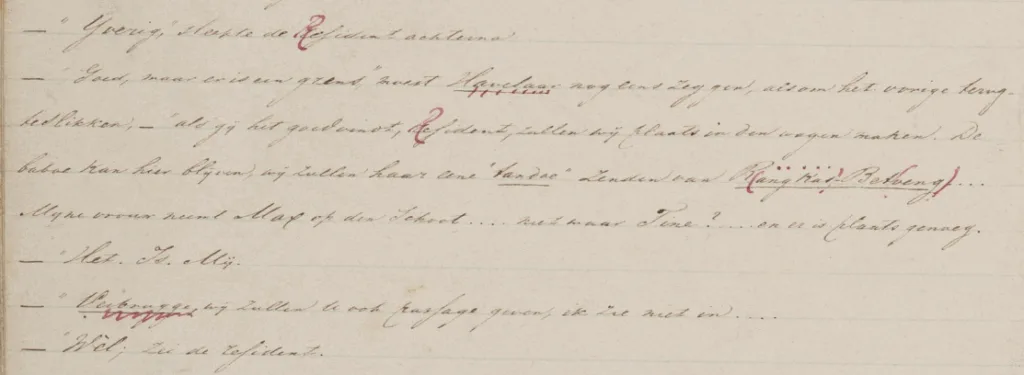 — "Yverig," sleepte de Resident achterna
— "Goed, maar er is een grens," moest Havelaar nog eens zeggen, als om het vorige terug-
teslikken, — "als gij het goedvindt, Resident, zullen wij plaats in den wagen maken. De
baboe kan hier blijven, wij zullen haar eene "tandoe" zenden van Rangkas-Betoeng)...
Myne vrouw neemt Max op den schoot.... niet waar Tine?.... en er is plaats genoeg.
— "Het. Is. Mij.
— "Verbrugge, wij zullen u ook passage geven, ik zie niet in....
— "Wèl; zei de resident.